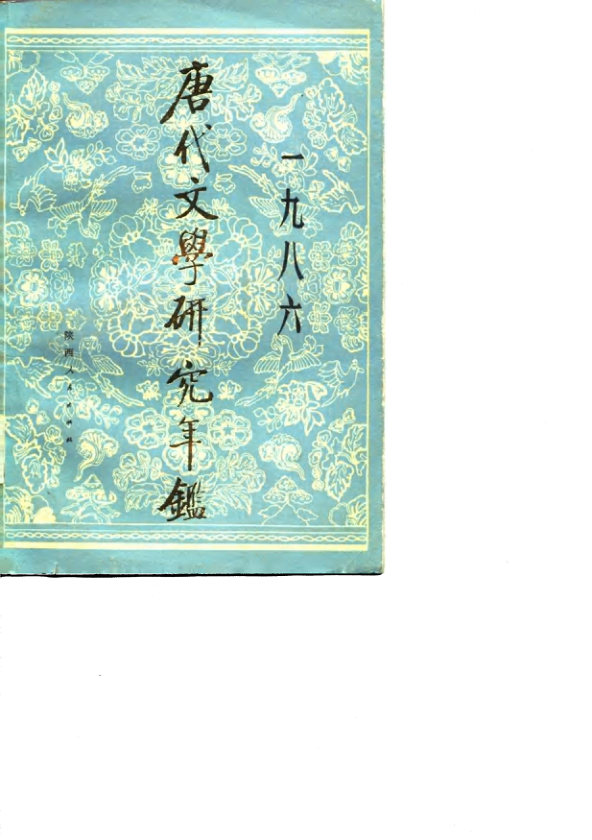 一九八六
唐代文學研究年鑑
陕西人民出版社